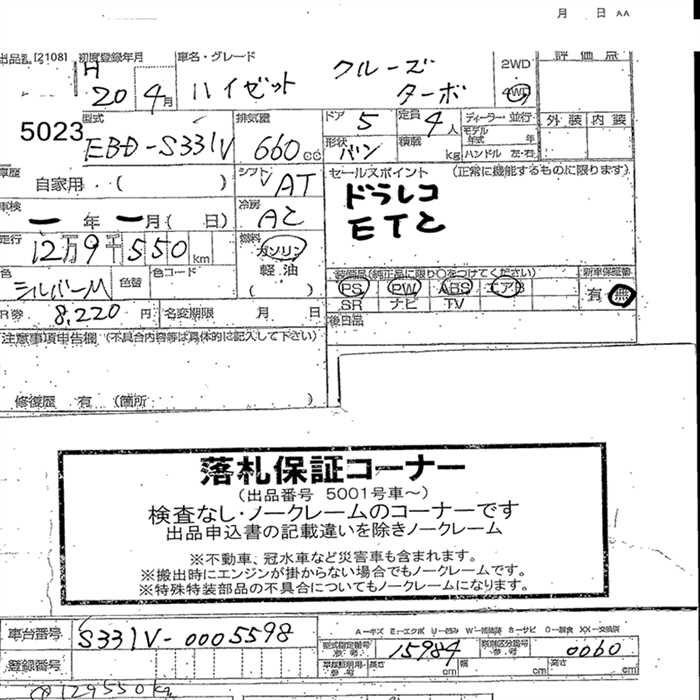 月 日 AA
出品番 [2108] 初度登録年月 車名・グレード 2WD 評価点
H 20年 4月 ハイゼット クルーズ ターボ 4WD
5023 型式 排気量 ドア 5 定員 4人 ディーラー・並行 外装 内装
EBD-S331V 660cc 形状 バン 積載 kg モデル年式 年
ハンドル 左・右
車歴 自家用・( ) シフト AT セールスポイント (正常に機能するものに限ります)
ドラレコ
車検 ー年ー月( 日) 冷房 AC ETC
走行 12万9千550km 燃料 ガソリン
軽・油
( )
色 シルバーM 色替 色コード
装備品(純正品に限り○をつけてください) 新車保証書
PS PW ABS エアB 有 無
SR ナビ TV
R券 8,220円 名変期限 月 日 後日品
注意事項申告欄 (不具合内容等は具体的に記入して下さい)
修復歴 有 (箇所 )
落札保証コーナー
(出品番号 5001号車~)
検査なし・ノークレームのコーナーです
出品申込書の記載違いを除きノークレーム
※不動車、冠水車など災害車も含まれます。
※搬出時にエンジンが掛からない場合でもノークレームです。
※特殊特装部品の不具合についてもノークレームになります。
車台番号 S331V-0005598
型式指定番号 15984 類別区分番号 0060
登録番号 長さ cm 幅 cm 高さ cm